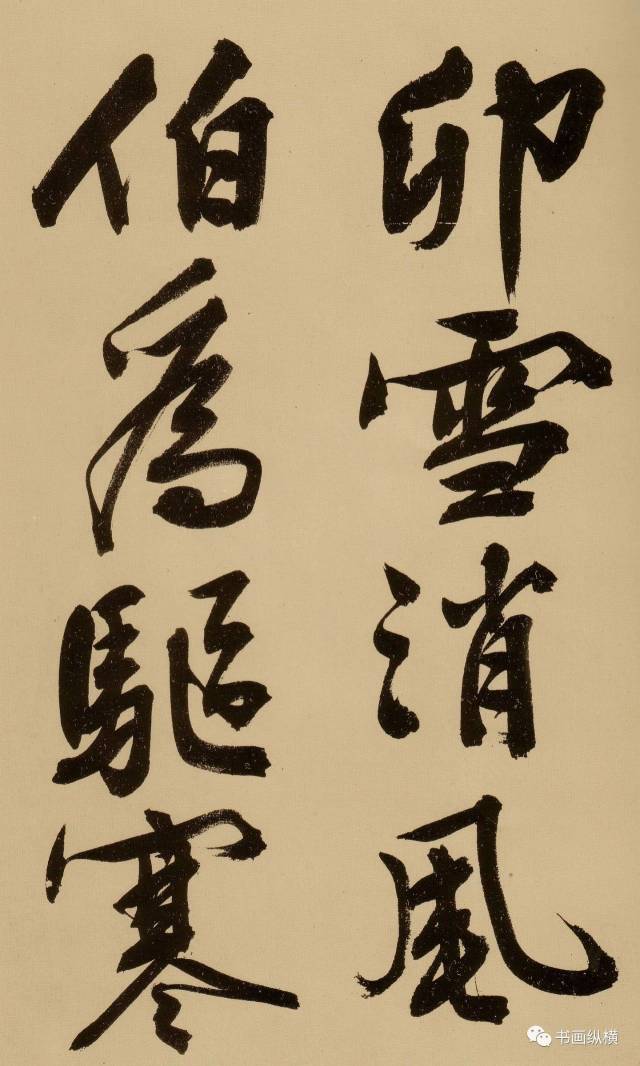 卯雪消風
伯為驅寒
书画纵横